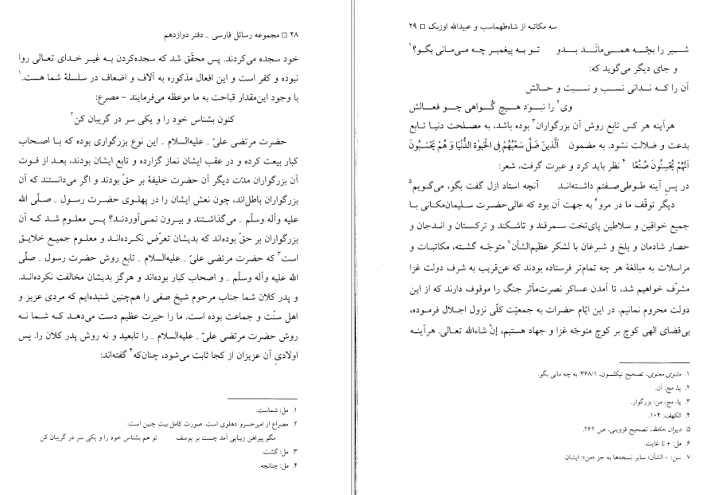 ۲۸ □ مجموعه رسائل فارسی ـ دفتر دوازدهم
خود سجده می‌کردند. پس محقّق شد که سجده‌کردن به غیر خدای تعالی روا
نبوده و کفر است و این افعال مذکوره به آلاف و اضعاف در سلسلهٔ شما هست.۱
با وجود این‌مقدار قباحت به ما موعظه می‌فرمایند - مصرع:
کنون بشناس خود را و یکی سر در گریبان کن۲
حضرت مرتضی علی ـ علیه‌السلام ـ این نوع بزرگواری بوده که با اصحاب
کبار بیعت کرده و در عقب ایشان نماز گزارده و تابع ایشان بودند، بعد از فوت
آن بزرگواران مدّت دیگر آن حضرت خلیفهٔ بر حق بودند و اگر می‌دانستند که آن
بزرگواران باطل‌اند، چون نعش ایشان را در پهلوی حضرت رسول ـ صلّی الله
علیه وآله وسلّم ـ می‌گذاشتند و بیرون نمی‌آوردند؟ پس معلوم شد که آن
بزرگواران بر حقّ بوده‌اند که بدیشان تعرّض نکرده‌اند و معلوم جمیع خلایق
است۳ که حضرت مرتضی علیّ ـ علیه‌السلام ـ تابع روش حضرت رسول ـ صلّی
الله علیه وآله وسلّم ـ و اصحاب کبار بوده‌اند و هرگز بدیشان مخالفت نکرده‌اند.
و پدر کلان شما جناب مرحوم شیخ صفی را هم‌چنین شنیده‌ایم که مردی عزیز و
اهل سنّت و جماعت بوده است. ما را حیرت عظیم دست می‌دهد که شما نه
روش حضرت مرتضی علیّ ـ علیه‌السلام ـ را تابعید و نه روش پدر کلان را. پس
اولادیِ آن عزیزان از کجا ثابت می‌شود، چنان‌که۴ گفته‌اند:
۱. مل: شماست.
۲. مصراع از امیرخسرو دهلوی است. صورت کامل بیت چنین است:
مگو پیراهن زیبایی آمد چست بر یوسف تو هم بشناس خود را و یکی سر در گریبان کن
۳. مل: گشت.
۴. مل: چنانچه.
سه مکاتبه از شاه‌طهماسب و عبیدالله اوزبک □ ۲۹
شیر را بچّه همی‌مانَد بدو تو به پیغمبر چه می‌مانی بگو؟۱
و جای دیگر می‌گوید که:
آن را که ندانی نسب و نسبت و حالش
وی۲ را نبوَد هیچ گواهی چو فعالش
هرآینه هر کس تابع روش آن بزرگواران۳ بوده باشد، به مصلحت دنیا تابع
بدعت و ضلالت نشود. به مضمون الَّذينَ ضَلَّ سَعْيُهُمْ فِي الْحَيٰوةِ الدُّنْيَا وَ هُمْ يَحْسَبُونَ
اَنَّهُمْ يُحْسِنُونَ صُنْعًا۴ نظر باید کرد و عبرت گرفت، شعر:
در پس آینه طوطی‌صفتم داشته‌اند آنچه استاد ازل گفت بگو، می‌گویم۵
دیگر توقّف ما در مرو۶ به جهت آن بود که عالی‌حضرت سلیمان‌مکانی با
جمیع خواقین و سلاطین پای‌تخت سمرقند و تاشکند و ترکستان و اندجان و
حصار شادمان و بلخ و شبرغان با لشکر عظیم‌الشأن۷ متوجّه گشته، مکاتبات و
مراسلات به مبالغهٔ هر چه تمام‌تر فرستاده بودند که عن‌قریب به شرف دولت غزا
مشرّف خواهیم شد، تا آمدن عساکر نصرت‌مآثر جنگ را موقوف دارند که از این
دولت محروم نمانیم. در این ایّام حضرات به جمعیّت کلّی نزول اجلال فرموده،
بی‌فضای الهی کوچ بر کوچ متوجّه غزا و جهاد هستیم، إنْ شاءالله تعالی. هرآینه
۱. مثنوی معنوی، تصحیح نیکلسون، ۳۶۸/۱، به چه مانی بگو.
۲. یا، مج: آن.
۳. یا، مج، من: بزرگوار.
۴. الکهف: ۱۰۴.
۵. دیوان حافظ، تصحیح قزوینی، ص ۲۶۲.
۶. مل: + تا غایت.
۷. سن: - الشأن؛ سایر نسخه‌ها به جز «من»: ایشان.